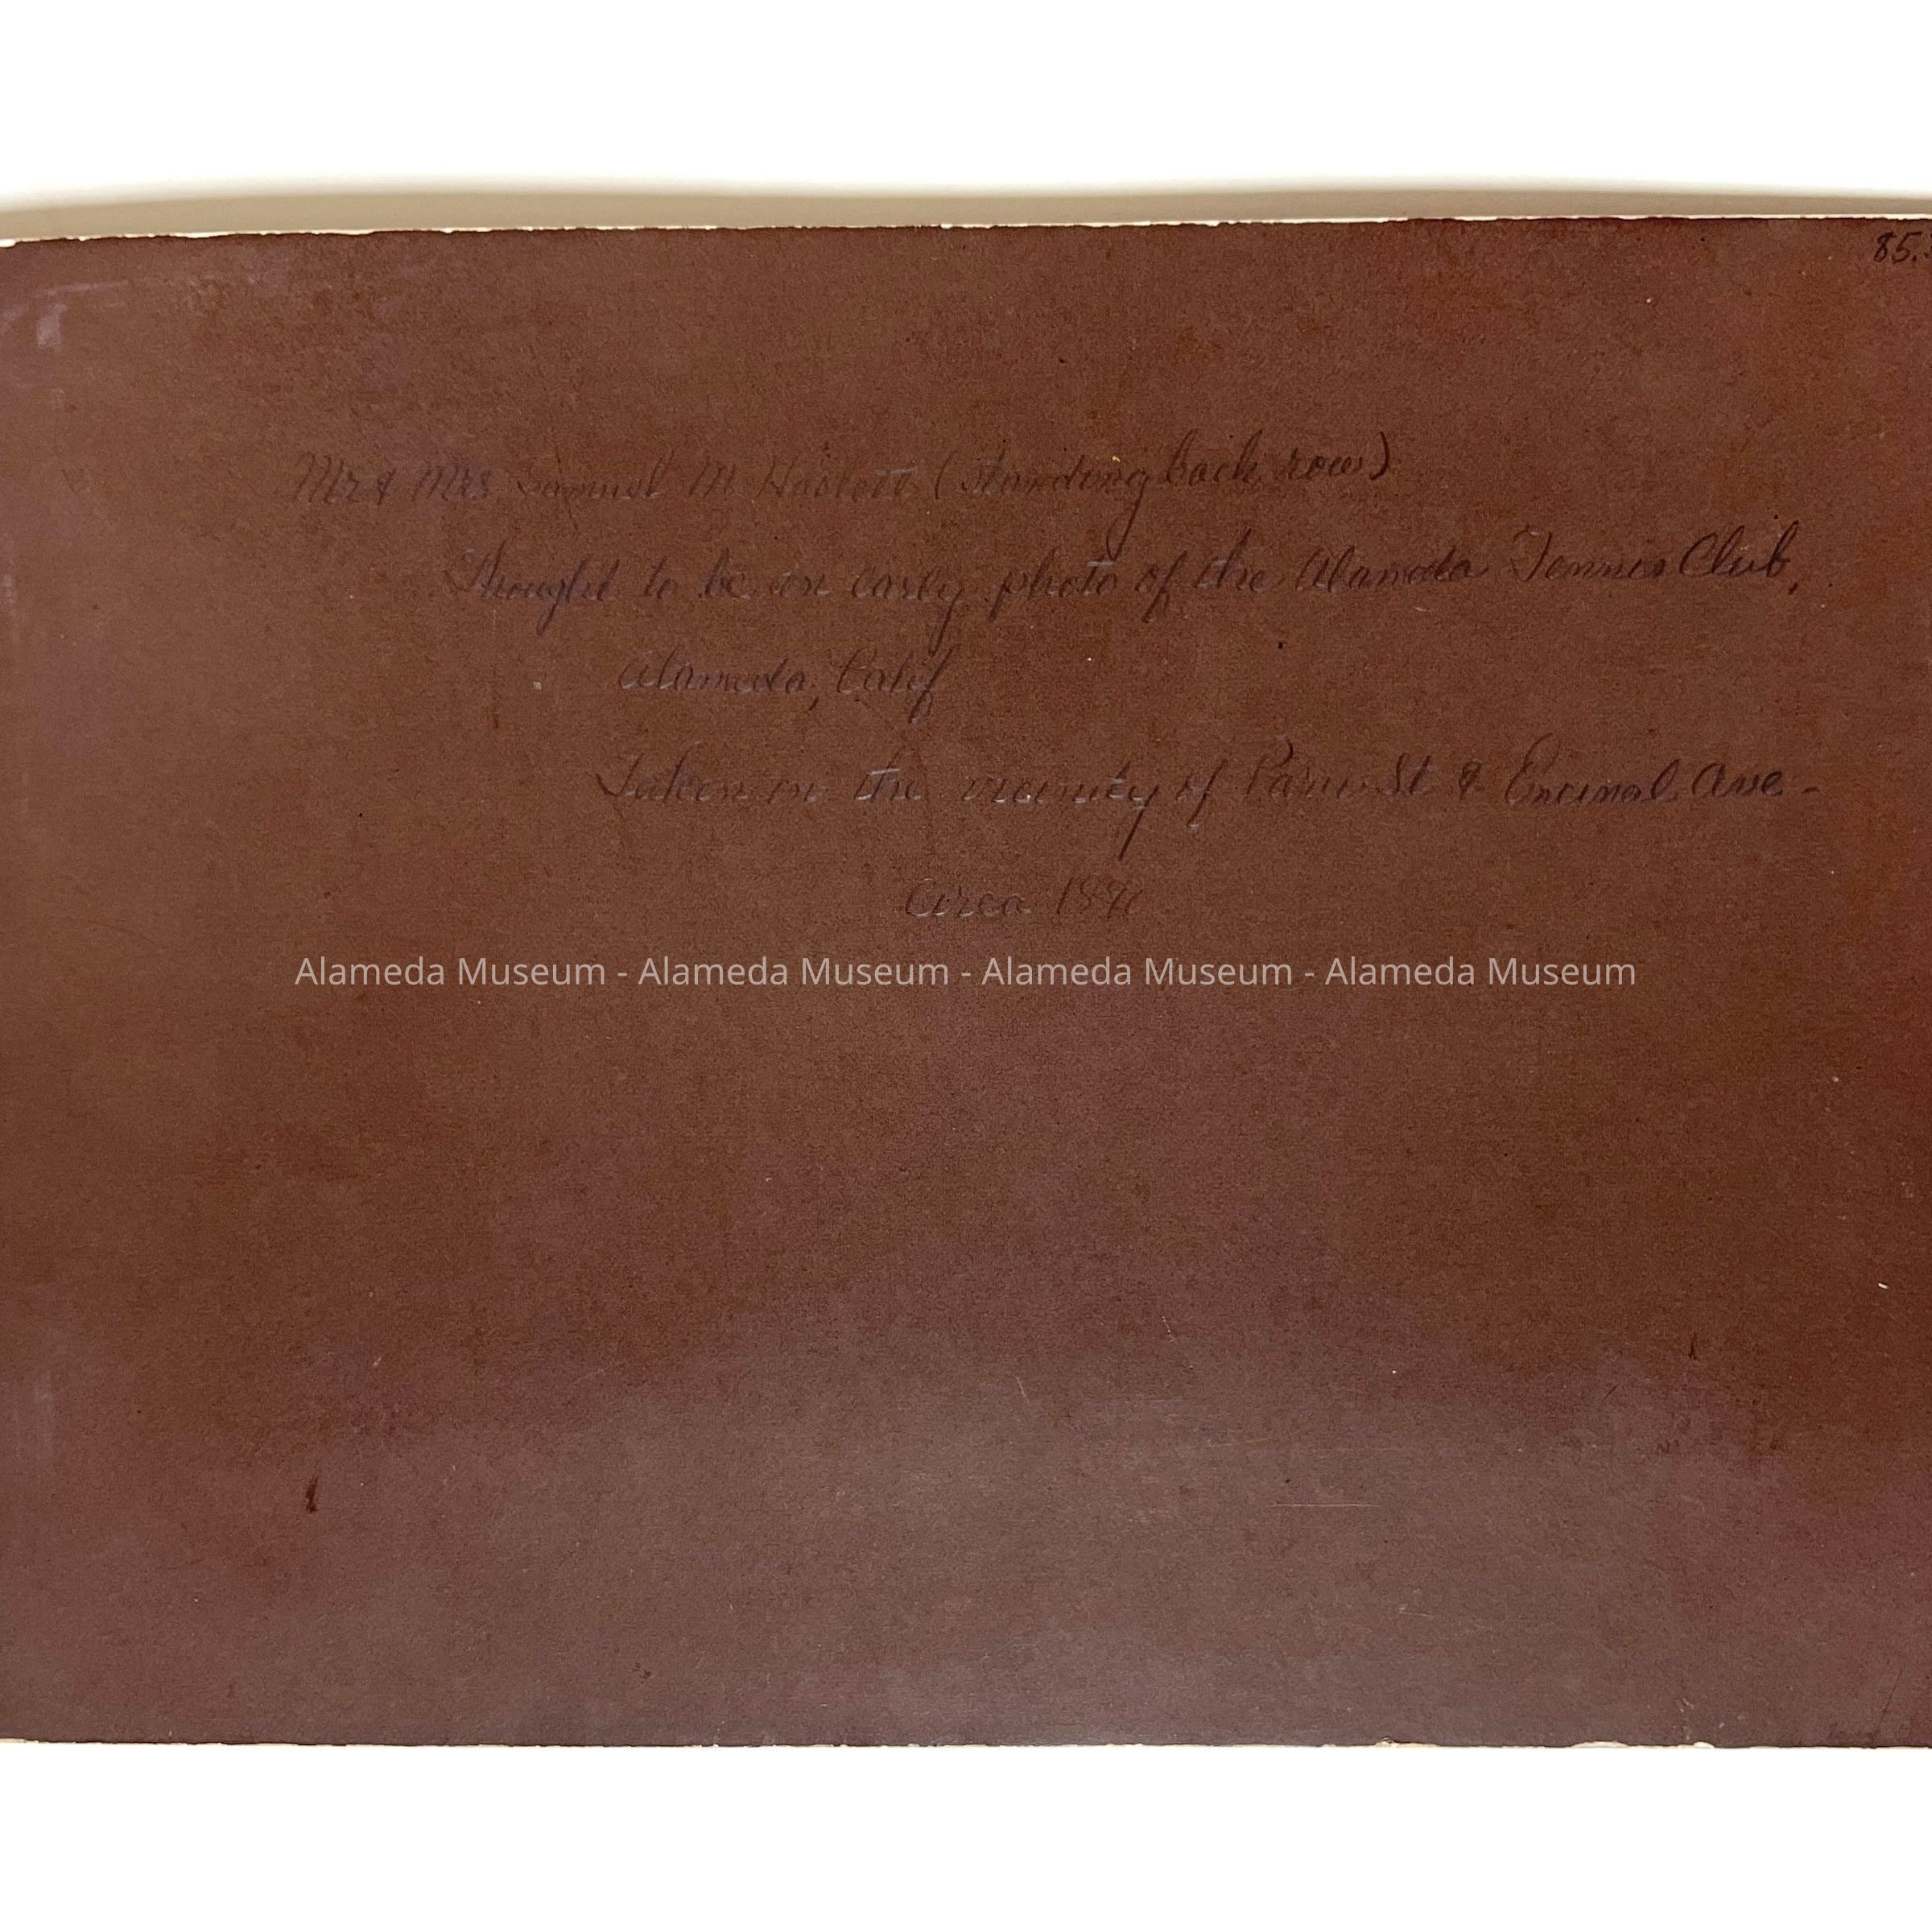 85.
Mr & Mrs. Samuel M Haslett (standing back row)
Thought to be an early photo of the Alameda Tennis Club,
Alameda, Calif
Taken in the vicinity of Park St & Encinal Ave -
Circa
Alameda Museum - Alameda Museum - Alameda Museum - Alameda Museum